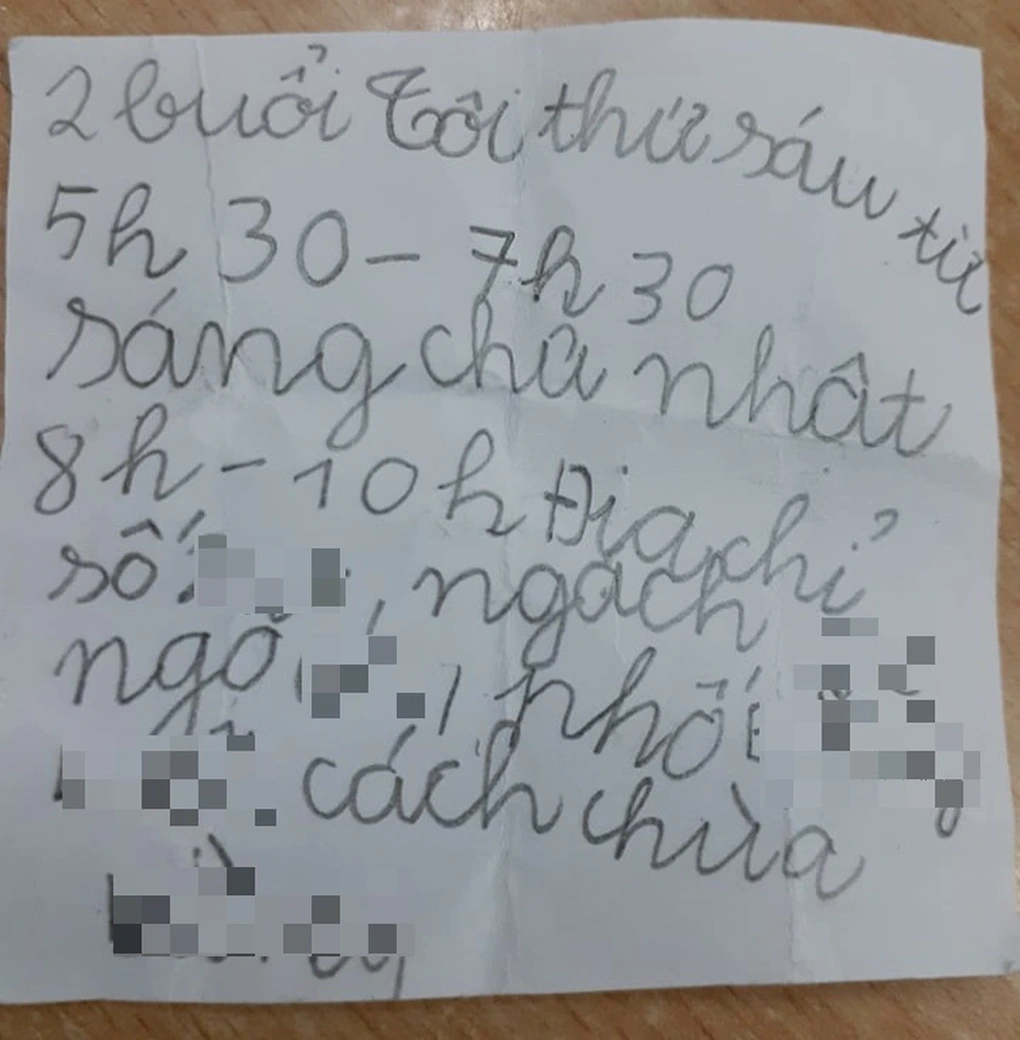 2 buổi Tôi thứ sáu từ
5h 30 - 7h 30
sáng chủ nhât
8h - 10h Địa chỉ
số , ngách
ngõ , phố
cách chùa